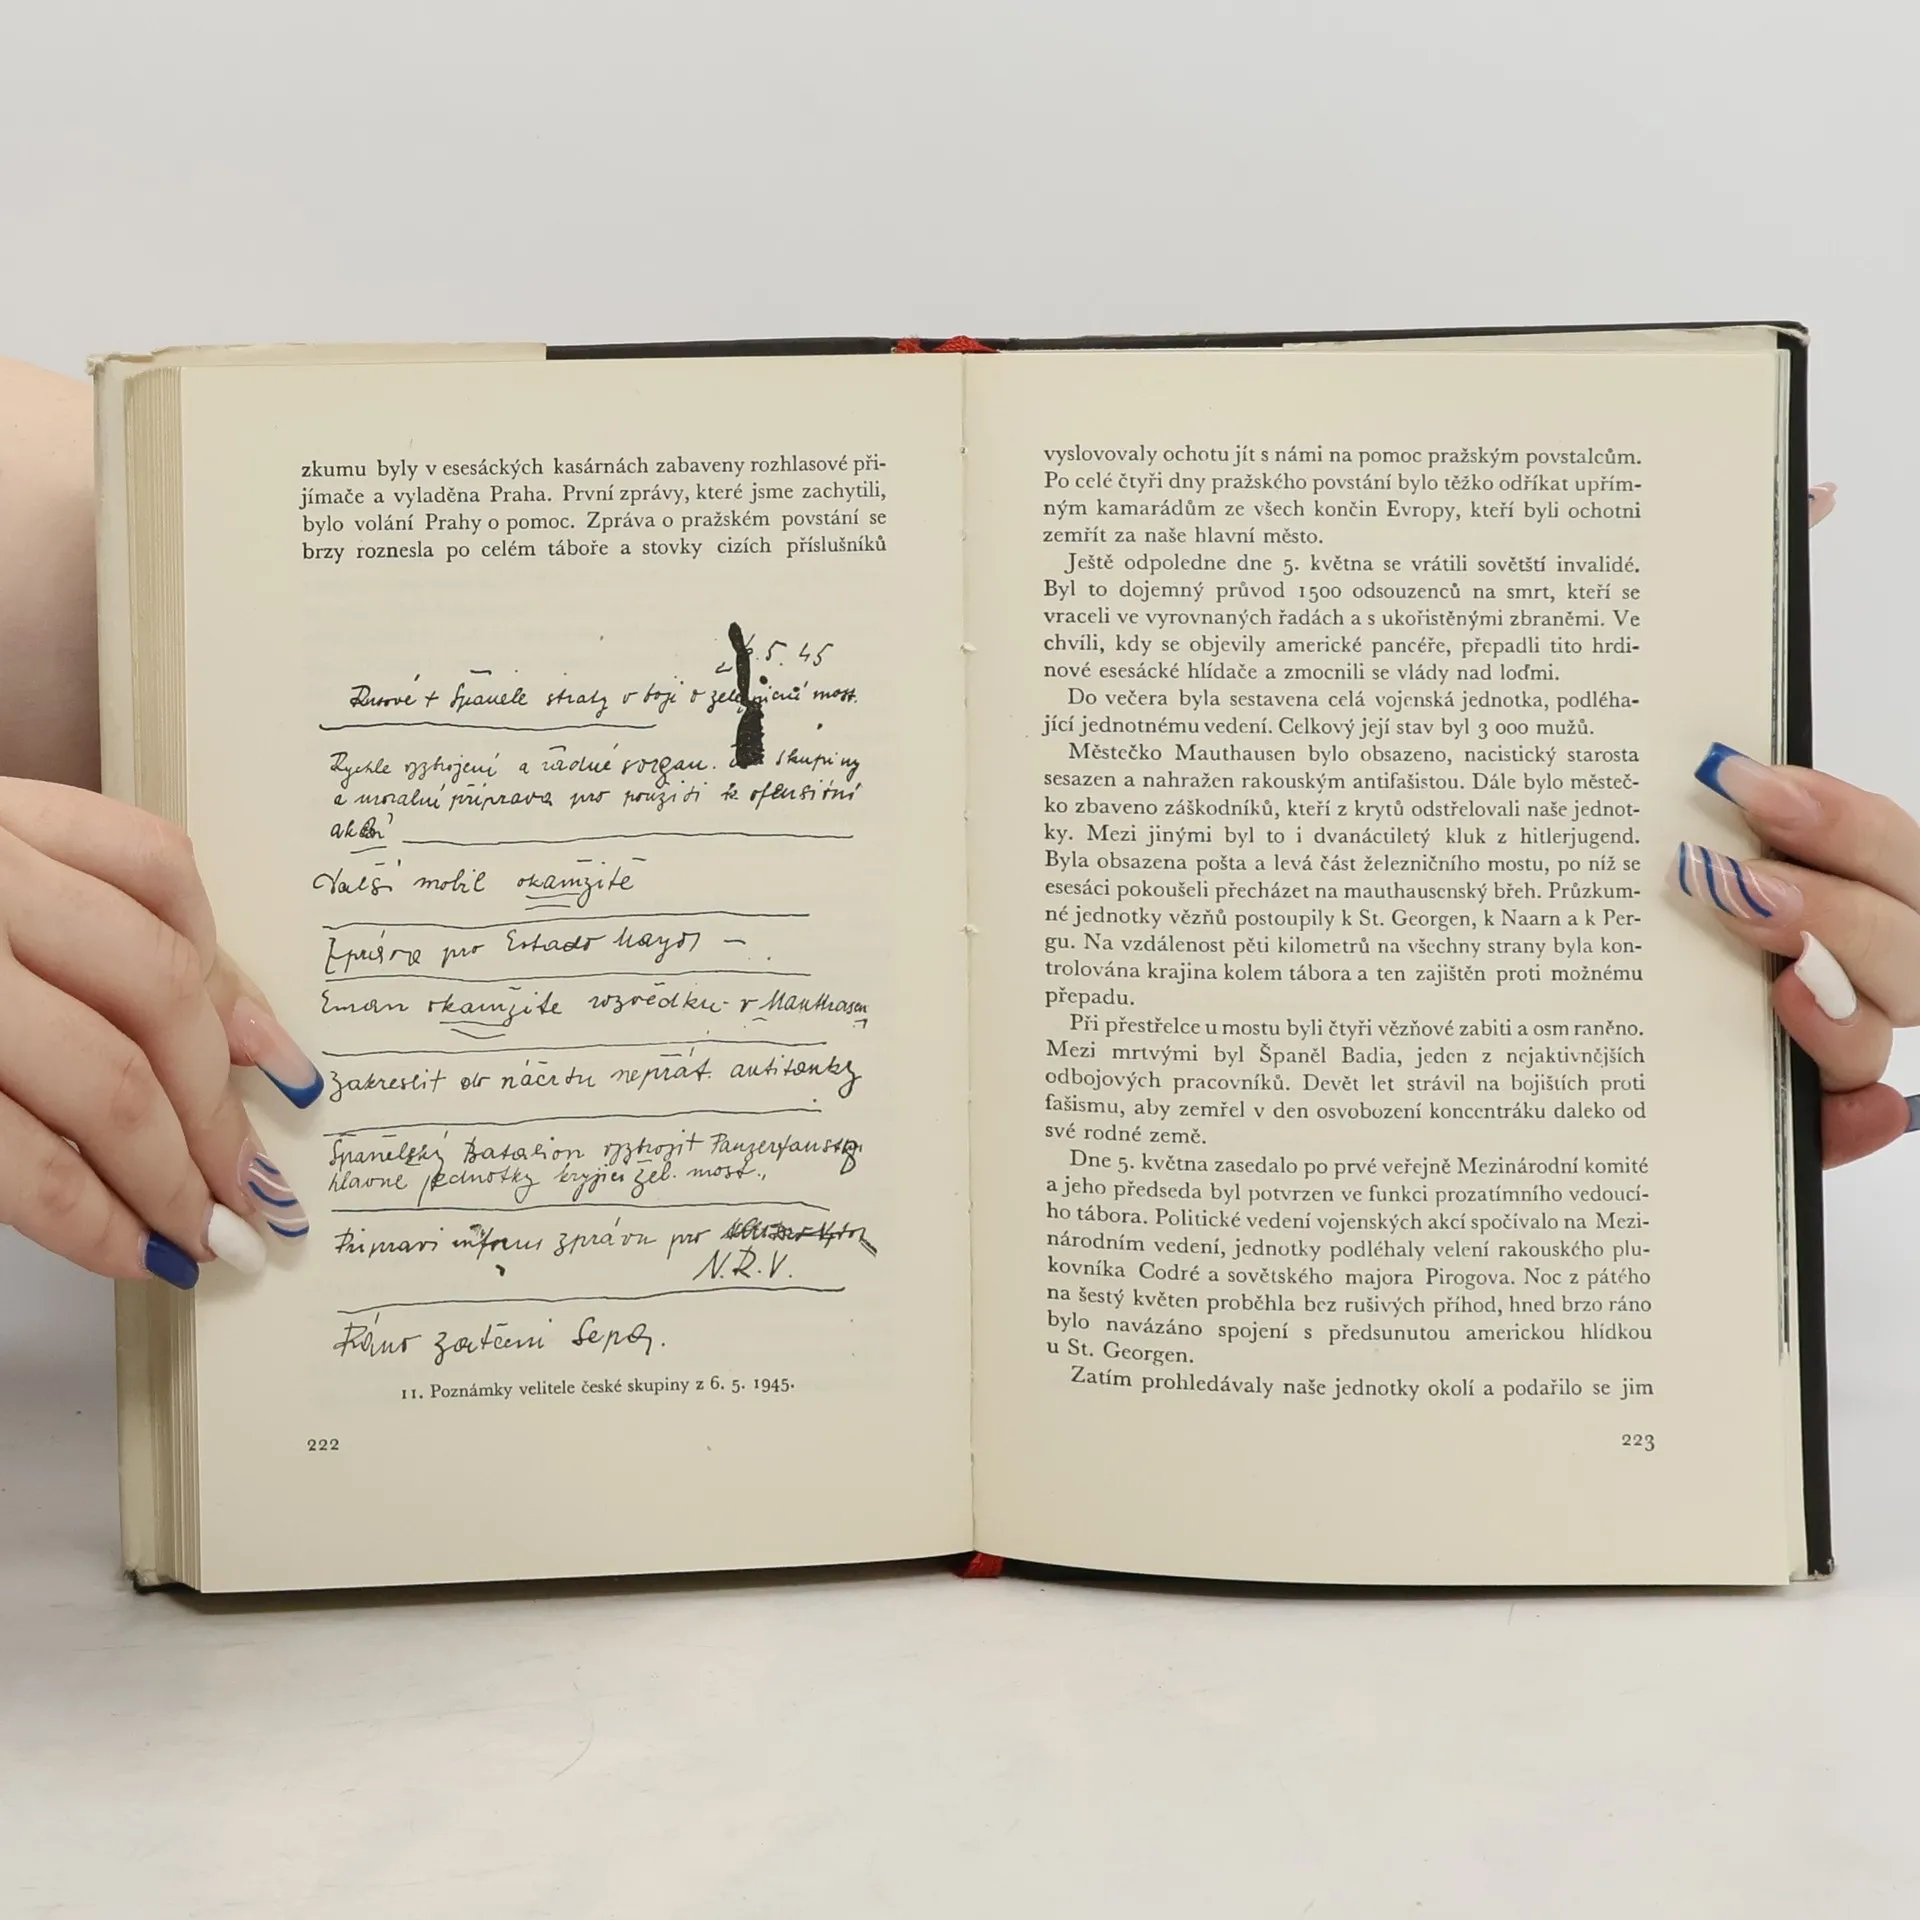 zkumu byly v esesáckých kasárnách zabaveny rozhlasové při-
jímače a vyladěna Praha. První zprávy, které jsme zachytili,
bylo volání Prahy o pomoc. Zpráva o pražském povstání se
brzy roznesla po celém táboře a stovky cizích příslušníků
6. 5. 45
Rusové + Španělé ztráty v boji o železniční most.
Rychle vyzbrojení a řádné zorgan. skupiny
a morální příprava pro použití k ofensivní
akci
Další mobil okamžitě
Zpráva pro Estado Mayor —
Eman okamžitě rozvědku v Mauthausen
Zakreslit do náčrtu nepřát. antitanky
Španělský Batalion vyzbrojit Panzerfausty
hlavně jednotky kryjící žel. most.,
Připraví inform zprávu pro
N.R.V.
Ráno zatčení Sepa.
11. Poznámky velitele české skupiny z 6. 5. 1945.
222
vyslovovaly ochotu jít s námi na pomoc pražským povstalcům.
Po celé čtyři dny pražského povstání bylo těžko odříkat upřím-
ným kamarádům ze všech končin Evropy, kteří byli ochotni
zemřít za naše hlavní město.
Ještě odpoledne dne 5. května se vrátili sovětští invalidé.
Byl to dojemný průvod 1500 odsouzenců na smrt, kteří se
vraceli ve vyrovnaných řadách a s ukořistěnými zbraněmi. Ve
chvíli, kdy se objevily americké pancéře, přepadli tito hrdi-
nové esesácké hlídače a zmocnili se vlády nad loďmi.
Do večera byla sestavena celá vojenská jednotka, podléha-
jící jednotnému vedení. Celkový její stav byl 3 000 mužů.
Městečko Mauthausen bylo obsazeno, nacistický starosta
sesazen a nahražen rakouským antifašistou. Dále bylo městeč-
ko zbaveno záškodníků, kteří z krytů odstřelovali naše jednot-
ky. Mezi jinými byl to i dvanáctiletý kluk z hitlerjugend.
Byla obsazena pošta a levá část železničního mostu, po níž se
esesáci pokoušeli přecházet na mauthausenský břeh. Průzkum-
né jednotky vězňů postoupily k St. Georgen, k Naarn a k Per-
gu. Na vzdálenost pěti kilometrů na všechny strany byla kon-
trolována krajina kolem tábora a ten zajištěn proti možnému
přepadu.
Při přestřelce u mostu byli čtyři vězňové zabiti a osm raněno.
Mezi mrtvými byl Španěl Badia, jeden z nejaktivnějších
odbojových pracovníků. Devět let strávil na bojištích proti
fašismu, aby zemřel v den osvobození koncentráku daleko od
své rodné země.
Dne 5. května zasedalo po prvé veřejně Mezinárodní komité
a jeho předseda byl potvrzen ve funkci prozatímního vedoucí-
ho tábora. Politické vedení vojenských akcí spočívalo na Mezi-
národním vedení, jednotky podléhaly velení rakouského plu-
kovníka Codré a sovětského majora Pirogova. Noc z pátého
na šestý květen proběhla bez rušivých příhod, hned brzo ráno
bylo navázáno spojení s předsunutou americkou hlídkou
u St. Georgen.
Zatím prohledávaly naše jednotky okolí a podařilo se jim
223